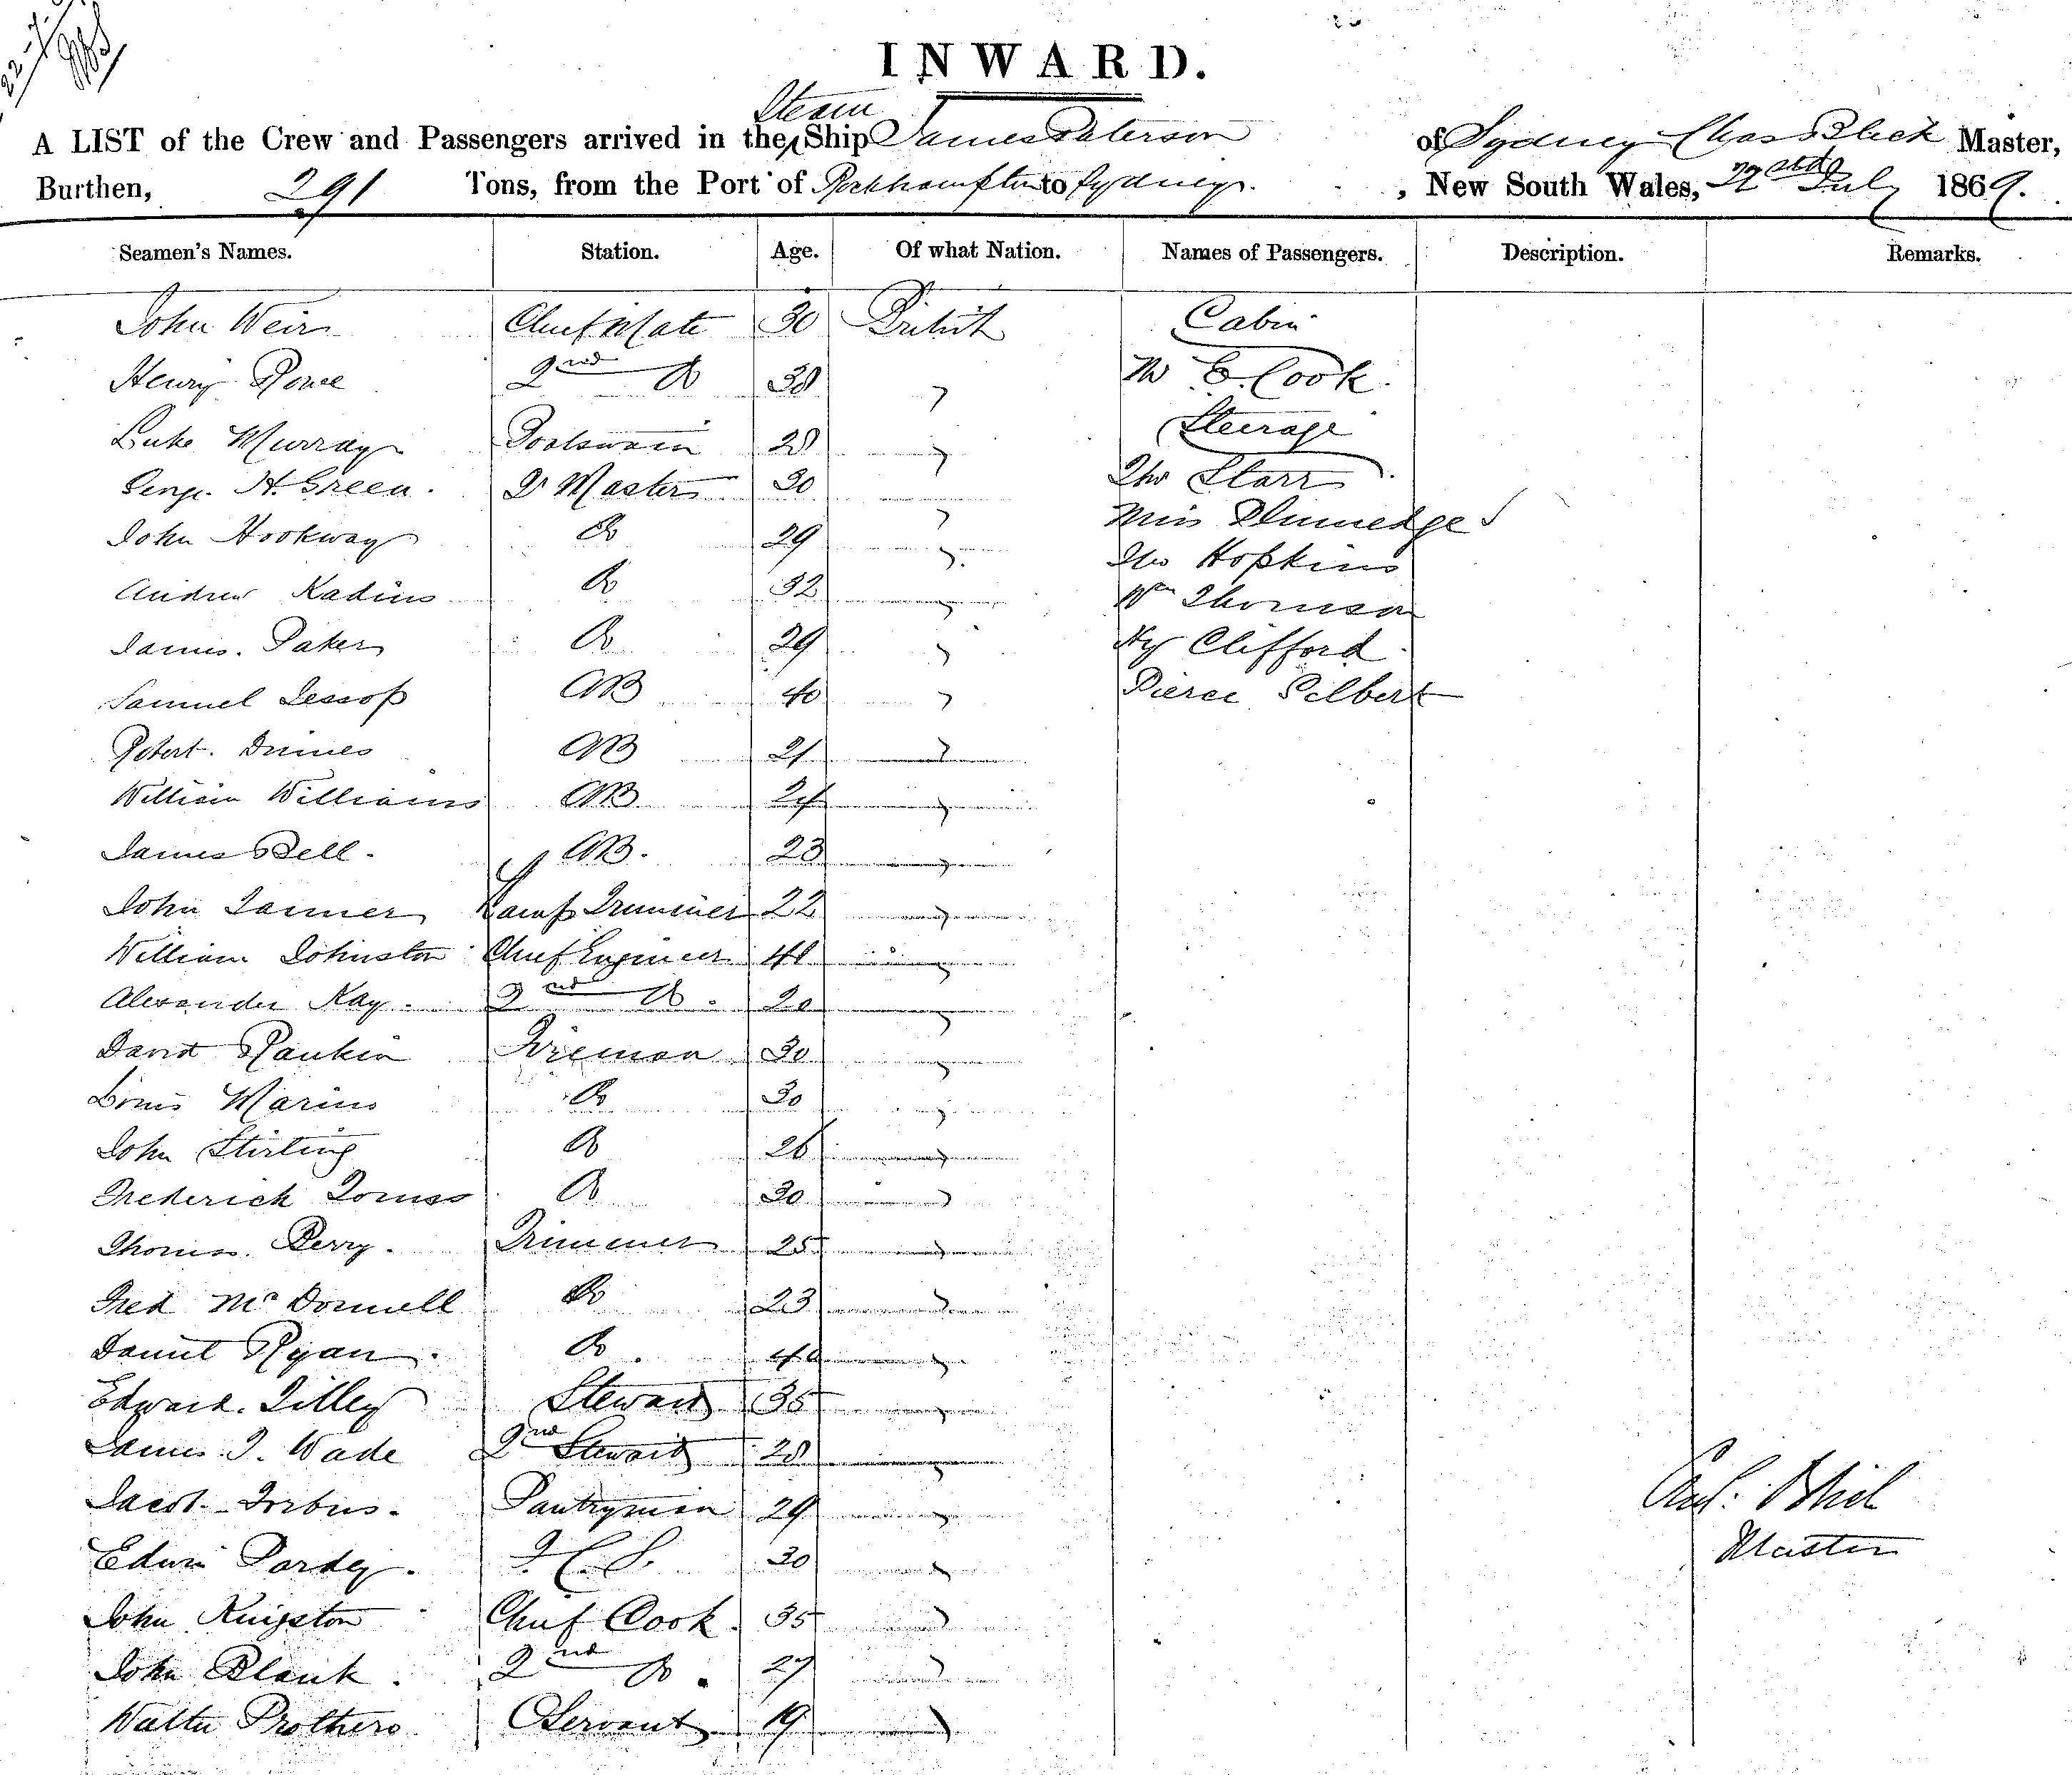 INWARD.
A LIST of the Crew and Passengers arrived in the Steam Ship James Paterson of Sydney Master,
Burthen, 291 Tons, from the Port of Rockhampton to Sydney. , New South Wales, 22nd July 1869.
Seamen's Names. Station. Age. Of what Nation. Names of Passengers. Description. Remarks.
John Weir Chief Mate 30 British Cabin
Henry 2nd Do " C. Cook.
Luke Murray Boatswain 28 " Steerage
H. Green. Qr Master 30 " Starr
John Hookway Do 29 " Miss
Andrew Do 32 " Hopkins
James. Baker Do 29 " Wm Thomson
Samuel Jessop AB 40 " Hy Clifford
Robert. AB 21 " Pierce
William Williams AB 24 "
James Bell. AB. 23 "
John Tanner Lamp Trimmer 22 "
William Johnston Chief Engineer 41 "
Alexander Kay. 2nd Do. "
David Rankin Fireman 30 "
Louis Do 30 "
John Stirling Do 26 "
Frederick Do 30 "
Thomas. Perry. Trimmer 25 "
Fred McDonnell Do 23 "
Daniel Ryan. Do. "
Edward. Tilley Steward 35 "
James T. Wade 2nd Steward 28 "
Jacob Pantryman 29 "
Edwin 30 "
Master
John Kingston Chief Cook. 35 "
John Blank. 2nd Do. 27 "
Walter Prothero Servant 19 "